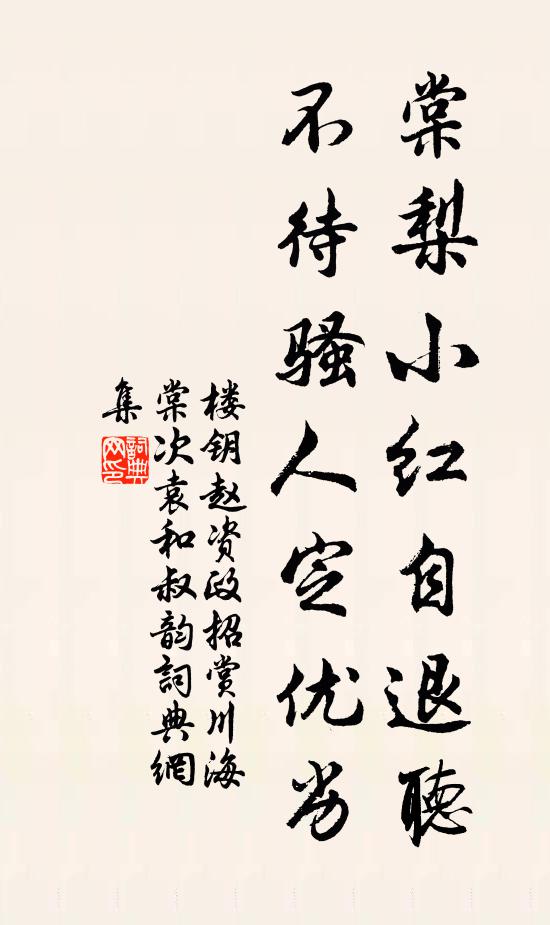 棠梨小红自退聽
不待骚人定优劣
楼钥赵资政招赏川海
棠次袁和叔韵詞典網
集
詞典網印